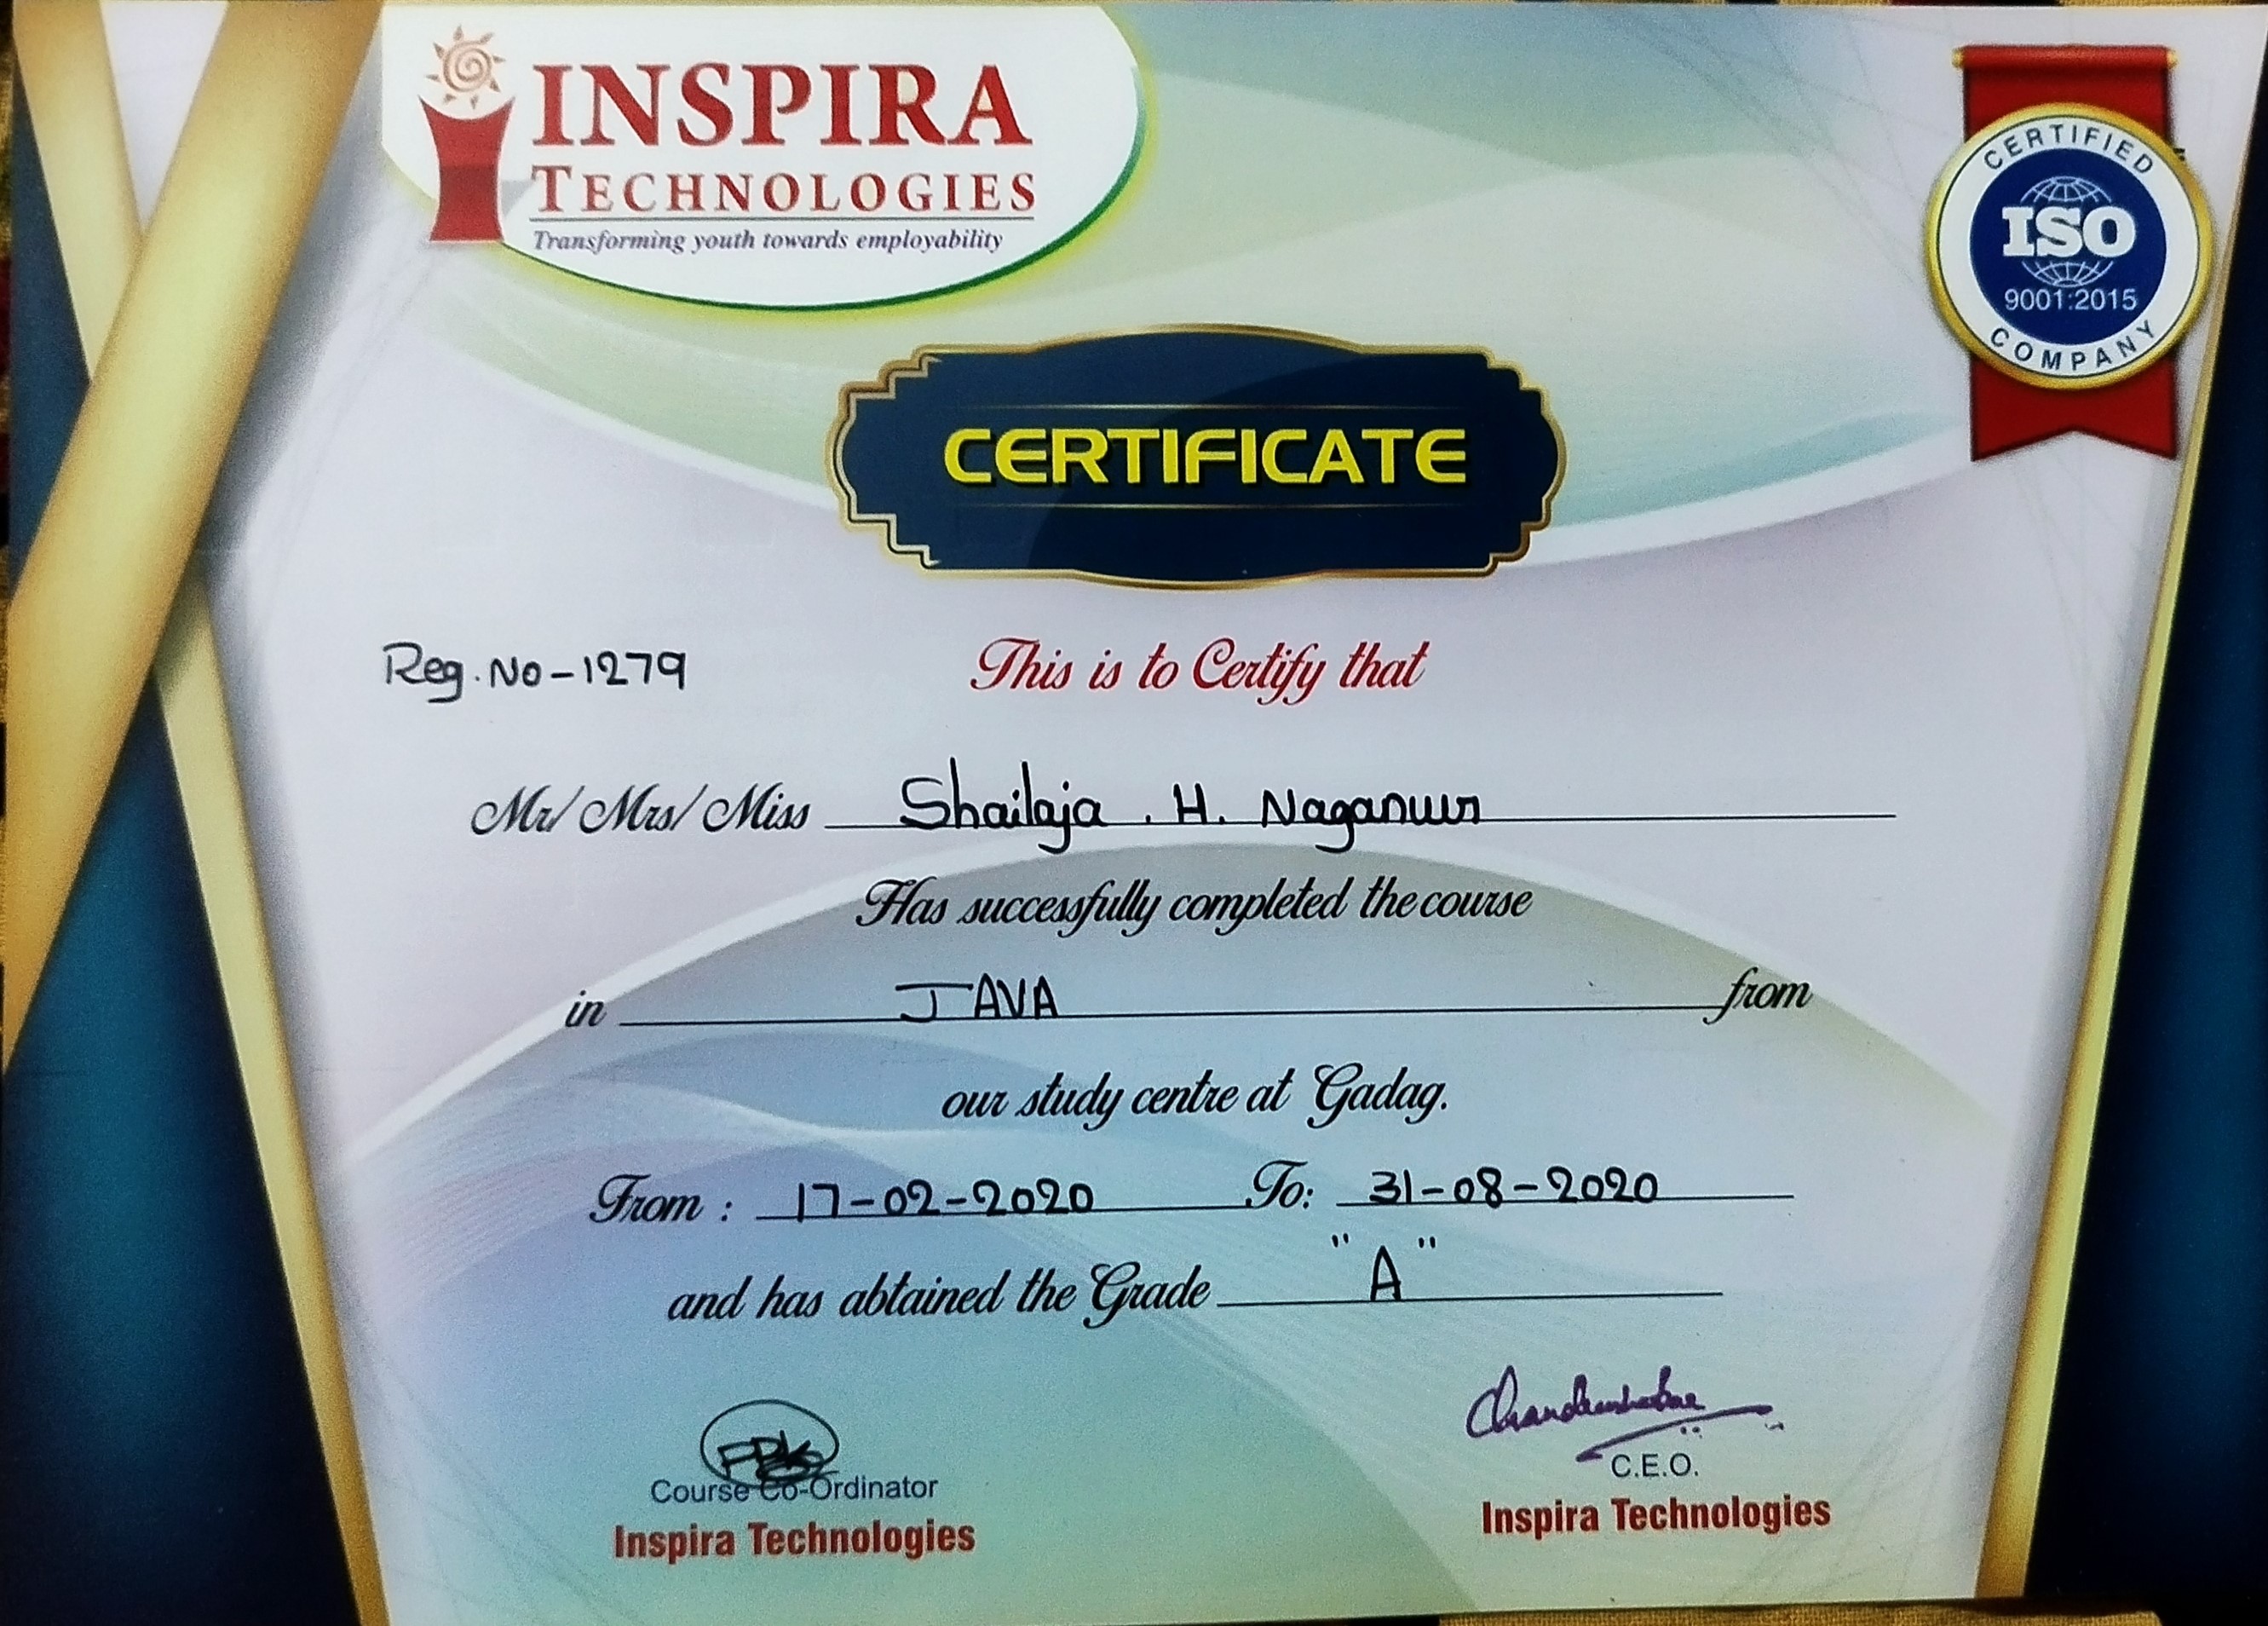 INSPIRA
TECHNOLOGIES
Transforming youth towards employability
CERTIFIED
ISO
9001:2015
COMPANY
CERTIFICATE
Reg. No-1279
This is to Certify that
Mr/ Mrs/ Miss Shailaja . H. Naganuur
Has successfully completed the course
in JAVA from
our study centre at Gadag.
From : 17-02-2020 To: 31-08-2020
and has abtained the Grade "A"
Course Co-Ordinator
Inspira Technologies
C.E.O.
Inspira Technologies